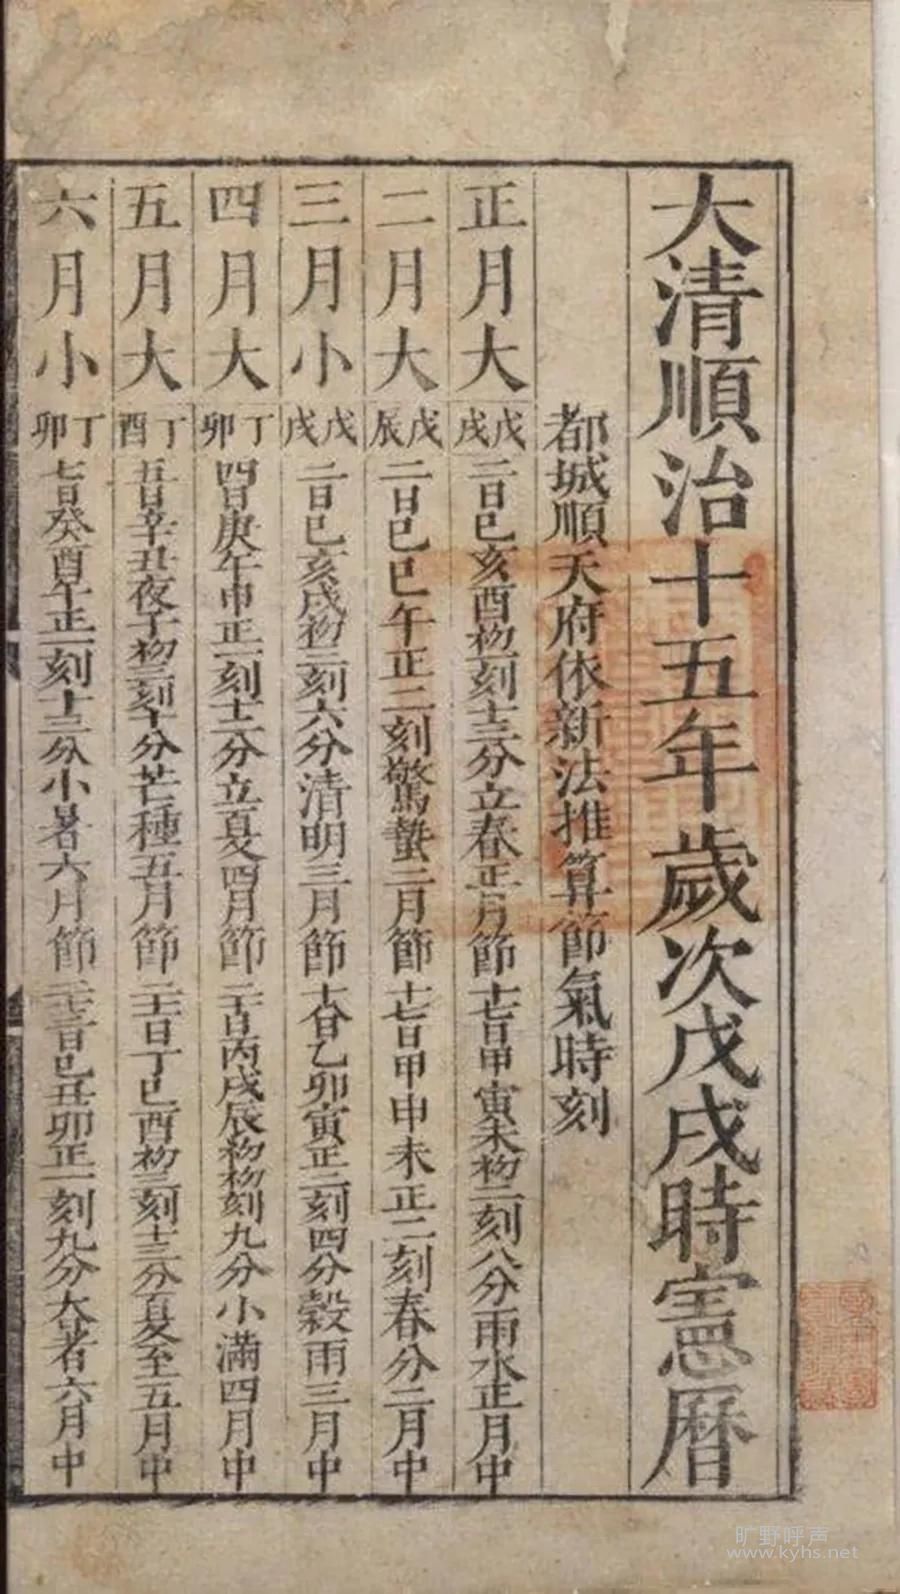 大清順治十五年歲次戊戌時憲曆
都城順天府依新法推算節氣時刻
正月大 戊戌 二日己亥酉初一刻十三分立春正月節 十七日甲寅未初二刻八分雨水正月中
二月大 戊辰 二日己巳午正二刻驚蟄二月節 十七日甲申未正二刻春分二月中
三月小 戊戌 二日己亥戌初二刻六分清明三月節 十八日乙卯寅正三刻四分穀雨三月中
四月大 丁卯 四日庚午申正一刻十二分立夏四月節 二十日丙戌辰初初刻九分小滿四月中
五月大 丁酉 五日辛丑夜子初三刻十分芒種五月節 二十一日丁巳酉初三刻十三分夏至五月中
六月小 丁卯 七日癸酉午正一刻十三分小暑六月節 二十三日己丑卯正一刻九分大暑六月中
旷野呼声
www.kyhs.net